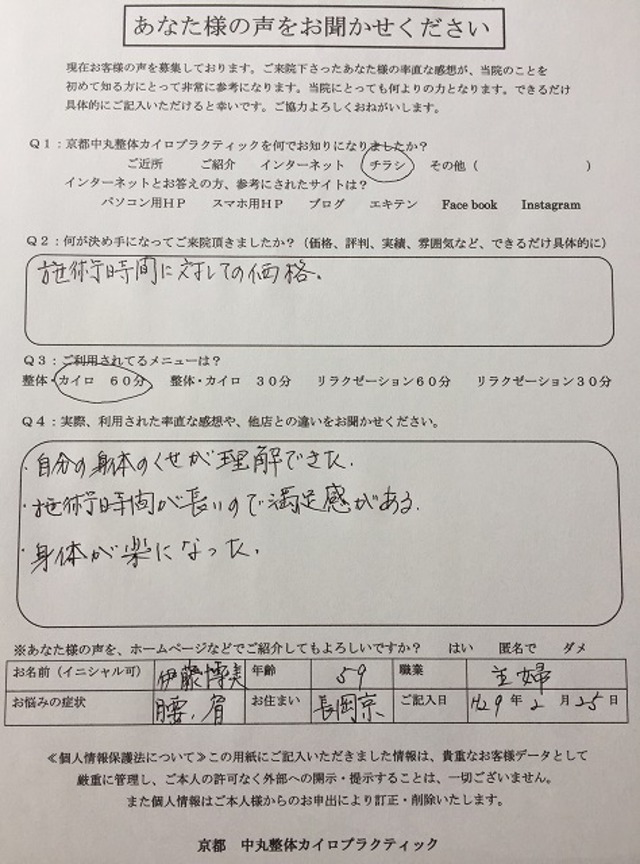 あなた様の声をお聞かせください
現在お客様の声を募集しております。ご来院下さったあなた様の率直な感想が、当院のことを
初めて知る方にとって非常に参考になります。当院にとっても何よりの力となります。できるだけ
具体的にご記入いただけると幸いです。ご協力よろしくおねがいします。
Q1：京都中丸整体カイロプラクティックを何でお知りになりましたか？
ご近所　ご紹介　インターネット　チラシ　その他（　　　）
インターネットとお答えの方、参考にされたサイトは？
パソコン用HP　スマホ用HP　ブログ　エキテン　Face book　Instagram
Q2：何が決め手になってご来院頂きましたか？（価格、評判、実績、雰囲気など、できるだけ具体的に）
施術時間に対しての価格。
Q3：ご利用されてるメニューは？
整体・カイロ　60分　整体・カイロ　30分　リラクゼーション60分　リラクゼーション30分
Q4：実際、利用された率直な感想や、他店との違いをお聞かせください。
・自分の身体のくせが理解できた.
・施術時間が長いので満足感がある.
・身体が楽になった.
※あなた様の声を、ホームページなどでご紹介してもよろしいですか？　はい　匿名で　ダメ
お名前（イニシャル可）　伊藤博美　年齢　59　職業　主婦
お悩みの症状　腰、肩　お住まい　長岡京　ご記入日　H29年2月25日
≪個人情報保護法について≫この用紙にご記入いただきました情報は、貴重なお客様データとして
厳重に管理し、ご本人の許可なく外部への開示・提示することは、一切ございません。
また個人情報はご本人様からのお申出により訂正・削除いたします。
京都　中丸整体カイロプラクティック